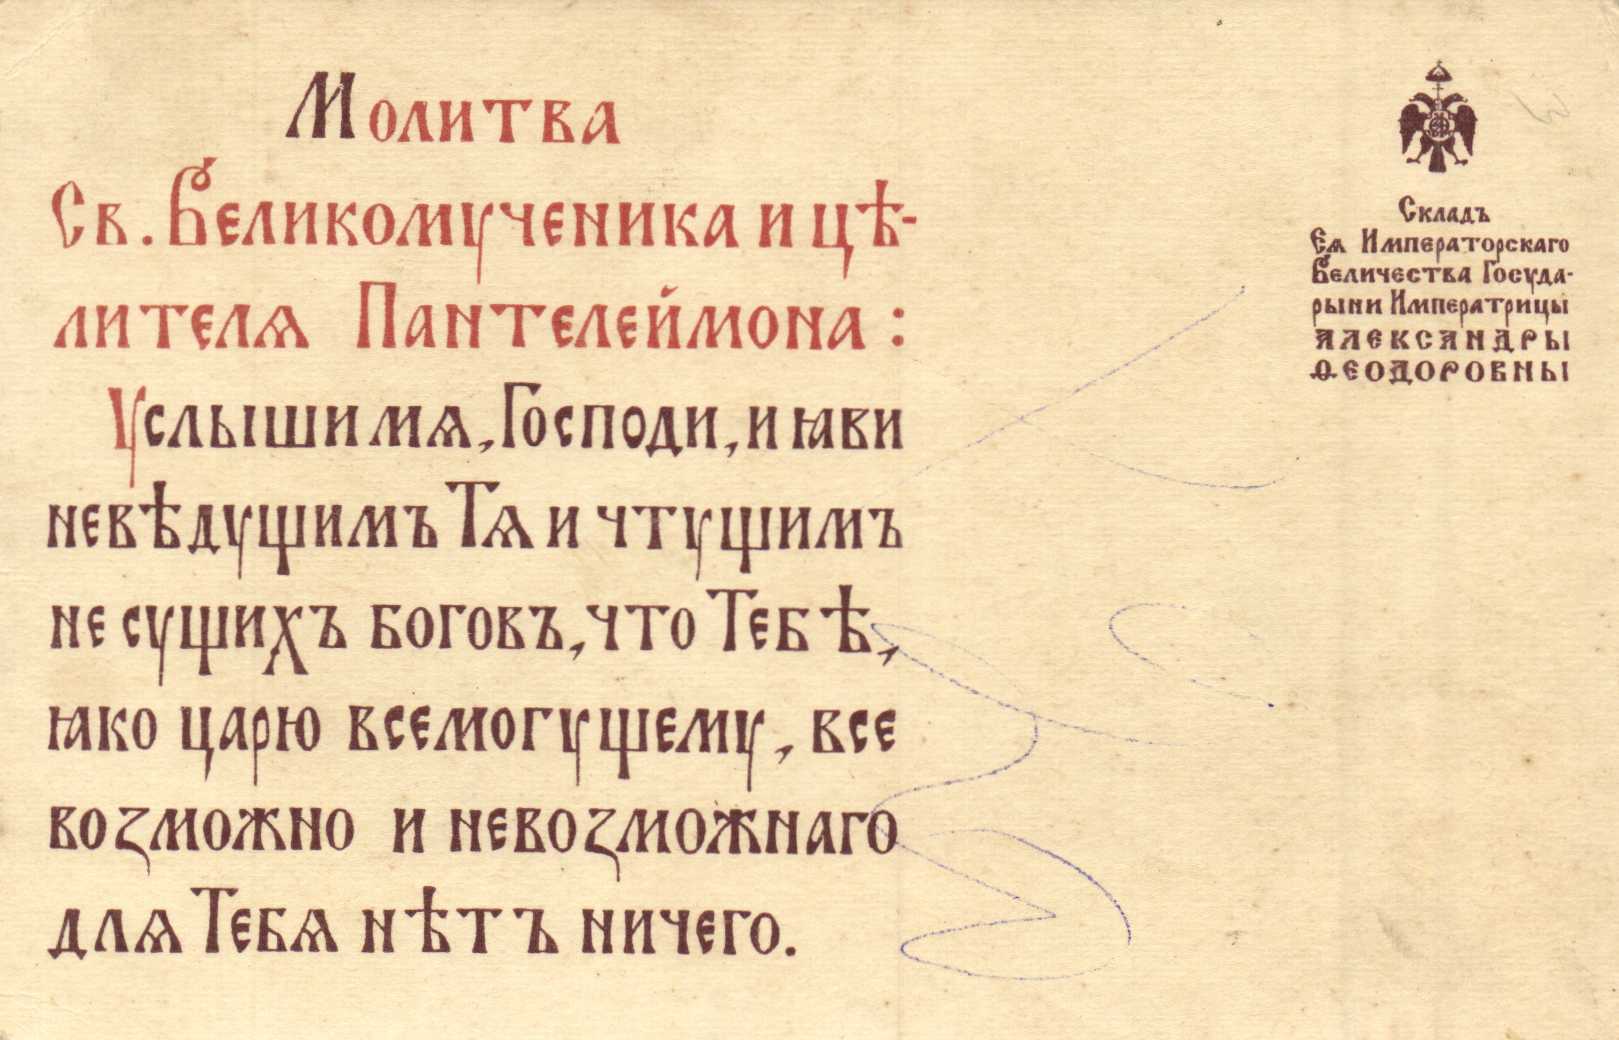 Молитва
Св. Великомученика и цѣ-
лителѧ Пантелеймона:
Услыши мѧ, Господи, и ꙗви
невѣдущимъ Тѧ и чтущим​ъ
не сущихъ богов​ъ, что Тебѣ,
ꙗко царю всемогущему, все
воꙁможно и невоꙁможнаго
длѧ Тебѧ нѣтъ ничего.
Складъ
Еѧ Императорскаго
Величества Госуда-
рыни Императрицы
Александры
Ѳеодоровны